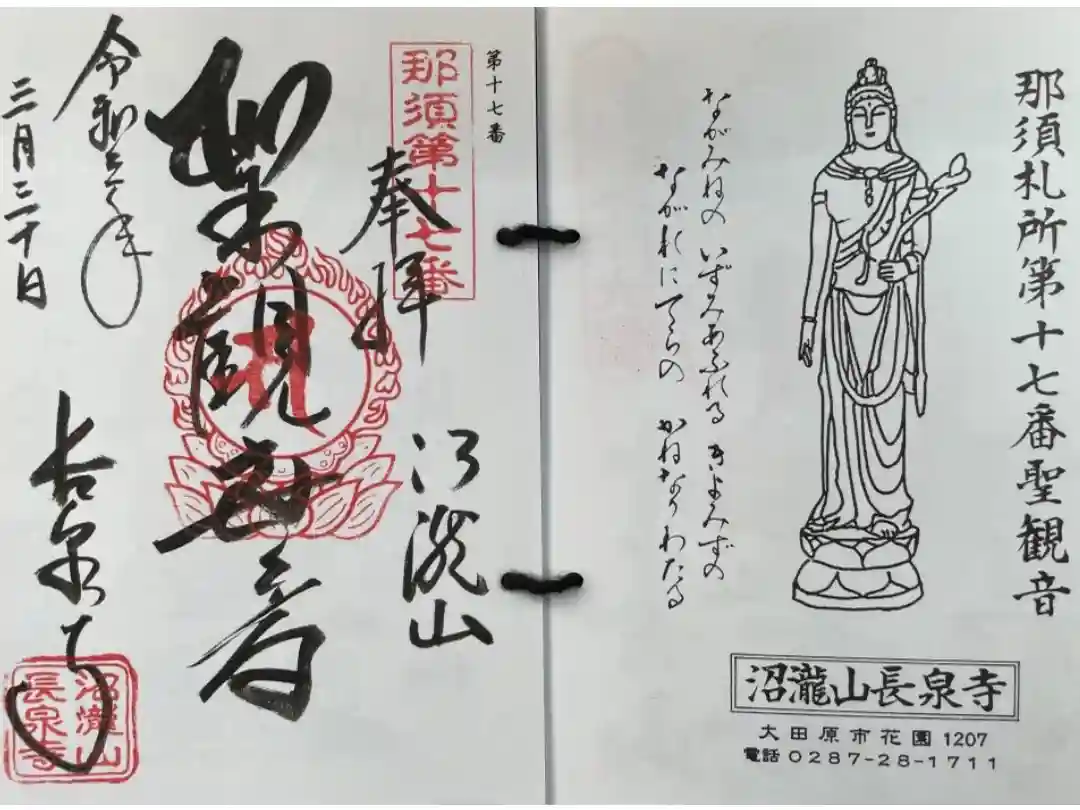 那須札所第十七番聖観音
ながみねの いずみあふれる きよみずの
ながれにてらの かねなりわたる
沼瀧山長泉寺
大田原市花園 1207
電話 0287-28-1711
第十七番
那須第十七番
奉拝
沼瀧山
聖観世音
令和六年
三月二十日
長泉寺
沼瀧山
長泉寺